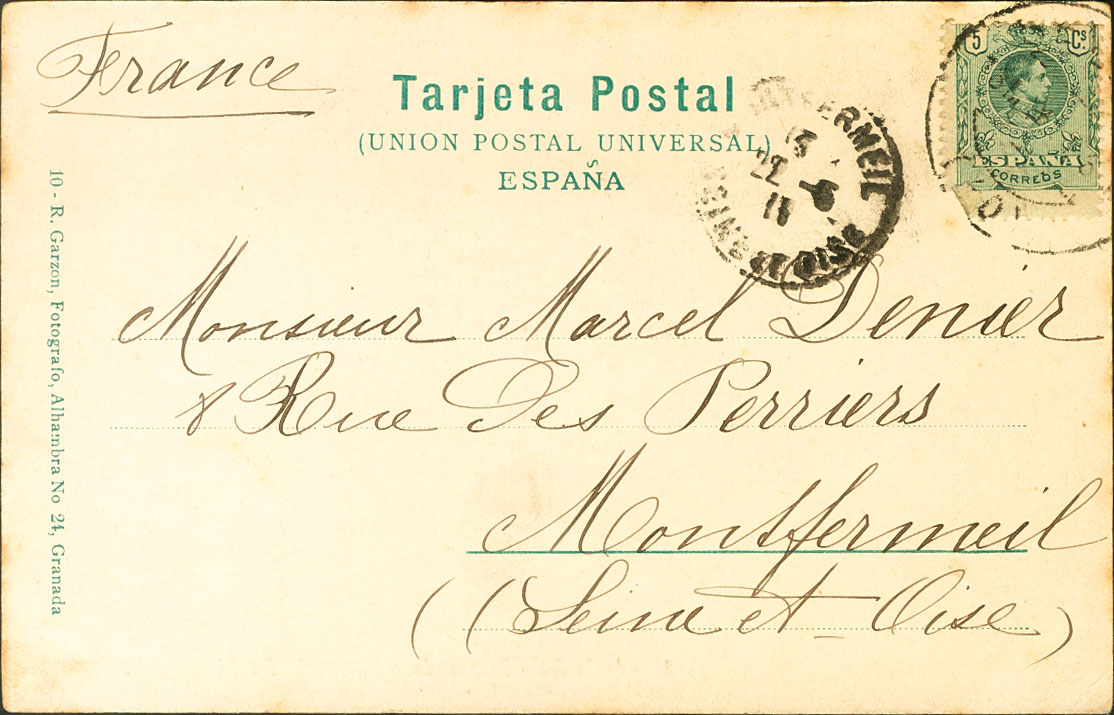 France
Tarjeta Postal
(UNION POSTAL UNIVERSAL)
ESPAÑA
5 Cs
ESPAÑA
CORREOS
22
11
Monsieur Marcel Denier
8 Rue Des Perriers
Montfermeil
(Seine et Oise)
10 - R. Garzon, Fotografo, Alhambra No 24, Granada